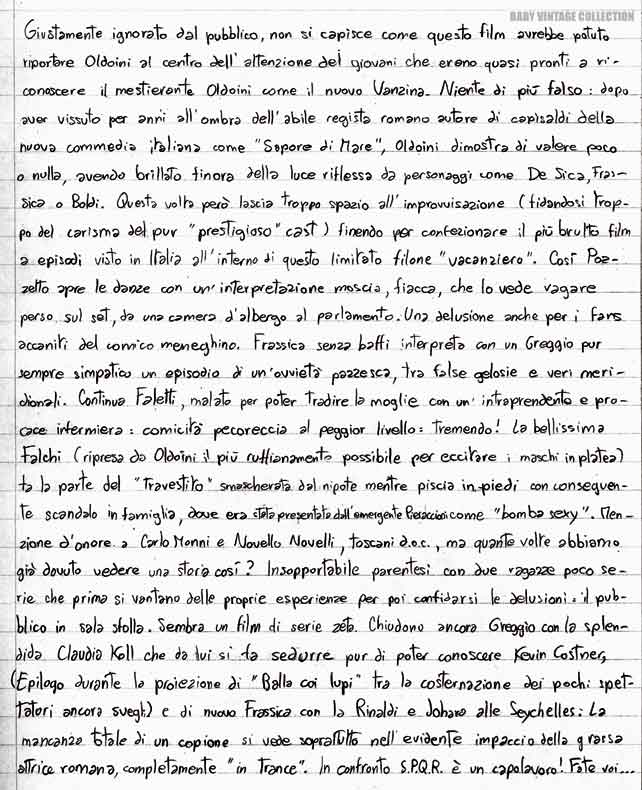 BABY VINTAGE COLLECTION
Giustamente ignorato dal pubblico, non si capisce come questo film avrebbe potuto
riportare Oldoini al centro dell'attenzione dei giovani che erano quasi pronti a ri-
conoscere il mestierante Oldoini come il nuovo Vanzina. Niente di più falso: dopo
aver vissuto per anni all'ombra dell'abile regista romano autore di capisaldi della
nuova commedia italiana come "Sapore di Mare", Oldoini dimostra di valere poco
o nulla, avendo brillato finora della luce riflessa da personaggi come De Sica, Fras-
sica o Boldi. Questa volta però lascia troppo spazio all'improvvisazione (fidandosi trop-
po del carisma del pur "prestigioso" cast) finendo per confezionare il più brutto film
a episodi visto in Italia all'interno di questo limitato filone "vacanziero". Così Poz-
zetto apre le danze con un'interpretazione moscia, fiacca, che lo vede vagare
perso sul set, da una camera d'albergo al parlamento. Una delusione anche per i fans
accaniti del comico meneghino. Frassica senza baffi interpreta con un Greggio pur
sempre simpatico un episodio di un'ovvietà pazzesca, tra false gelosie e veri meri-
dionali. Continua Faletti, malato per poter tradire la moglie con un'intraprendente e pro-
cace infermiera: comicità pecoreccia al peggior livello: tremendo! La bellissima
Falchi (ripresa da Oldoini il più ruffianamente possibile per eccitare i maschi in platea)
fa la parte del "Travestito" smascherata dal nipote mentre piscia in piedi con conseguen-
te scandalo in famiglia, dove era stata presentata dall'emergente Pieraccioni come "bomba sexy". Men-
zione d'onore a Carlo Monni e Novello Novelli, toscani d.o.c., ma quante volte abbiamo
già dovuto vedere una storia così? Insopportabile parentesi con due ragazze poco se-
rie che prima si vantano delle proprie esperienze per poi confidarsi le delusioni: il pub-
blico in sala sfolla. Sembra un film di serie zeta. Chiudono ancora Greggio con la splen-
dida Claudia Koll che da lui si fa sedurre pur di poter conoscere Kevin Costner,
(Epilogo durante la proiezione di "Balla coi lupi" tra la costernazione dei pochi spet-
tatori ancora svegli) e di nuovo Frassica con la Rinaldi e Johara alle Seychelles: La
mancanza totale di un copione si vede soprattutto nell'evidente impaccio della grassa
attrice romana, completamente "in trance". In confronto S.P.Q.R. è un capolavoro! Fate voi...